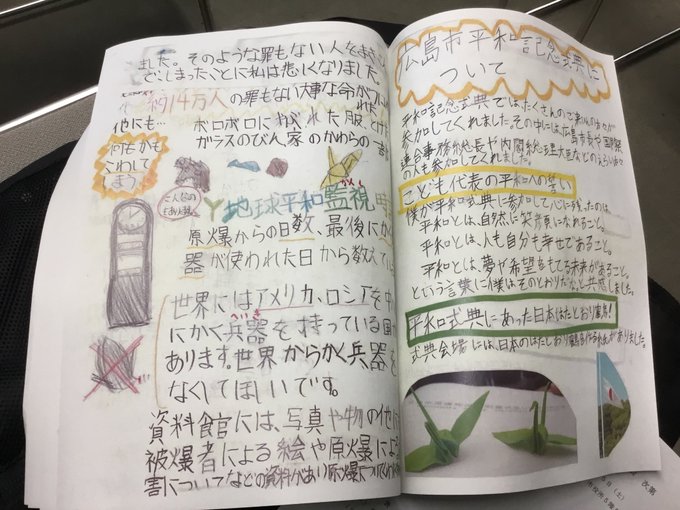 ました。そのような罪もない人をまきこ
でしまったことに私は悲しくなりました
約14万人の罪もない大事な命が
他にも…
ボロボロにやぶれた服、
ガラスのびん、家のかわらの
何もかも
こわして
しまう
こんなの
もあります。
地球平和監視
原爆からの日数、最後に
器が使われた日から数えて
世界にはアメリカ、ロシアを中
にかく兵器を持っている国
あります。世界からかく兵器を
なくしてほしいです。
資料館には、写真や物の他に
被爆者による絵や原爆によ
害についてなどの資料があり原爆について
広島市平和記念式典に
ついて
平和記念式典ではたくさんのご
参加してくれました。その中には、広島市長や国際
連合事務総長や内閣総理大臣などのえらい
の人も参加してくれました。
こども代表の平和への誓い
僕が平和式典に参加して心に残ったのは、
平和とは、自然に笑顔になれること。
平和とは、人も自分も幸せであること。
平和とは、夢や希望をもてる未来があること。
という言葉に僕はそのとおりだなと共感しました。
平和式典にあった日本はたとおり鶴!
式典会場には、日本のはたとおり鶴がありました。
次第
(土)